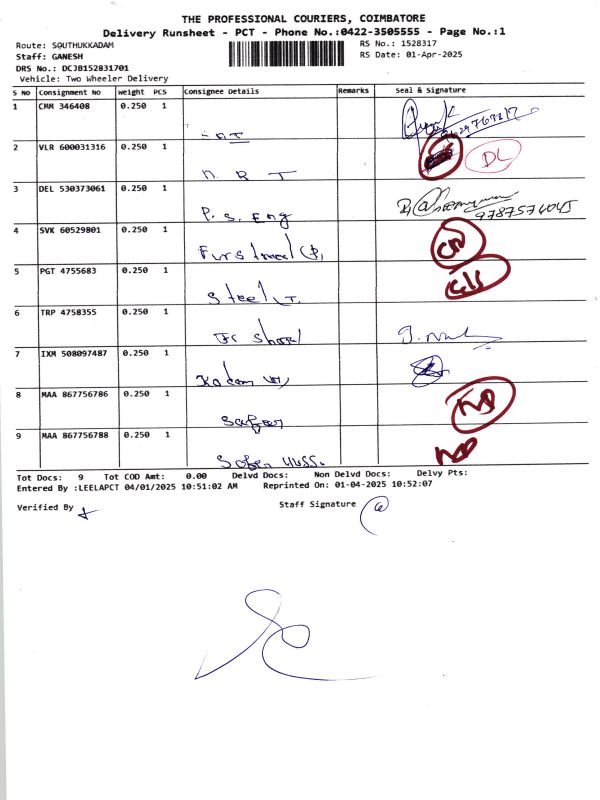 THE PROFESSIONAL COURIERS, COIMBATORE
Delivery Runsheet - PCT - Phone No.:0422-3505555 - Page No.:1
Route: SOUTHUKKADAM RS No.: 1528317
Staff: GANESH RS Date: 01-Apr-2025
DRS No.: DCJB152831701
Vehicle: Two Wheeler Delivery
S No Consignment No Weight PCS Consignee Details Remarks Seal & Signature
1 CMM 346408 0.250 1
2 VLR 600031316 0.250 1 DL
N. R T
3 DEL 530373061 0.250 1
P. S. Eng 9787574045
4 SVK 60529801 0.250 1
5 PGT 4755683 0.250 1
Steel
6 TRP 4758355 0.250 1
7 IXM 508097487 0.250 1
Kadam
8 MAA 867756786 0.250 1
9 MAA 867756788 0.250 1
Tot Docs: 9 Tot COD Amt: 0.00 Delvd Docs: Non Delvd Docs: Delvy Pts:
Entered By :LEELAPCT 04/01/2025 10:51:02 AM Reprinted On: 01-04-2025 10:52:07
Verified By Staff Signature